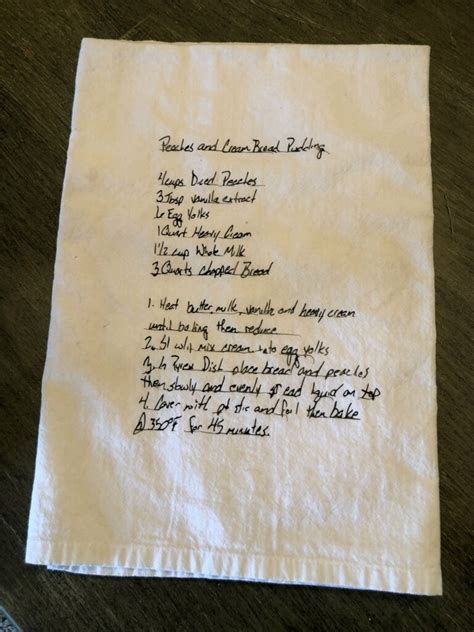 Peaches and Cream Bread Pudding
4 cups Diced Peaches
3 Tbsp vanilla extract
6 Egg Yolks
1 Quart Heavy Cream
1 1/2 cup Whole Milk
3 Quarts chopped Bread
1. Heat butter, milk, vanilla and heavy cream
until boiling then reduce
2. Sl wly mix cream into egg yolks
3. In Pyrex Dish place bread and peaches
then slowly and evenly s read liquid on top
4. Cover with pl stic and foil then bake
@ 350°F for 45 minutes.